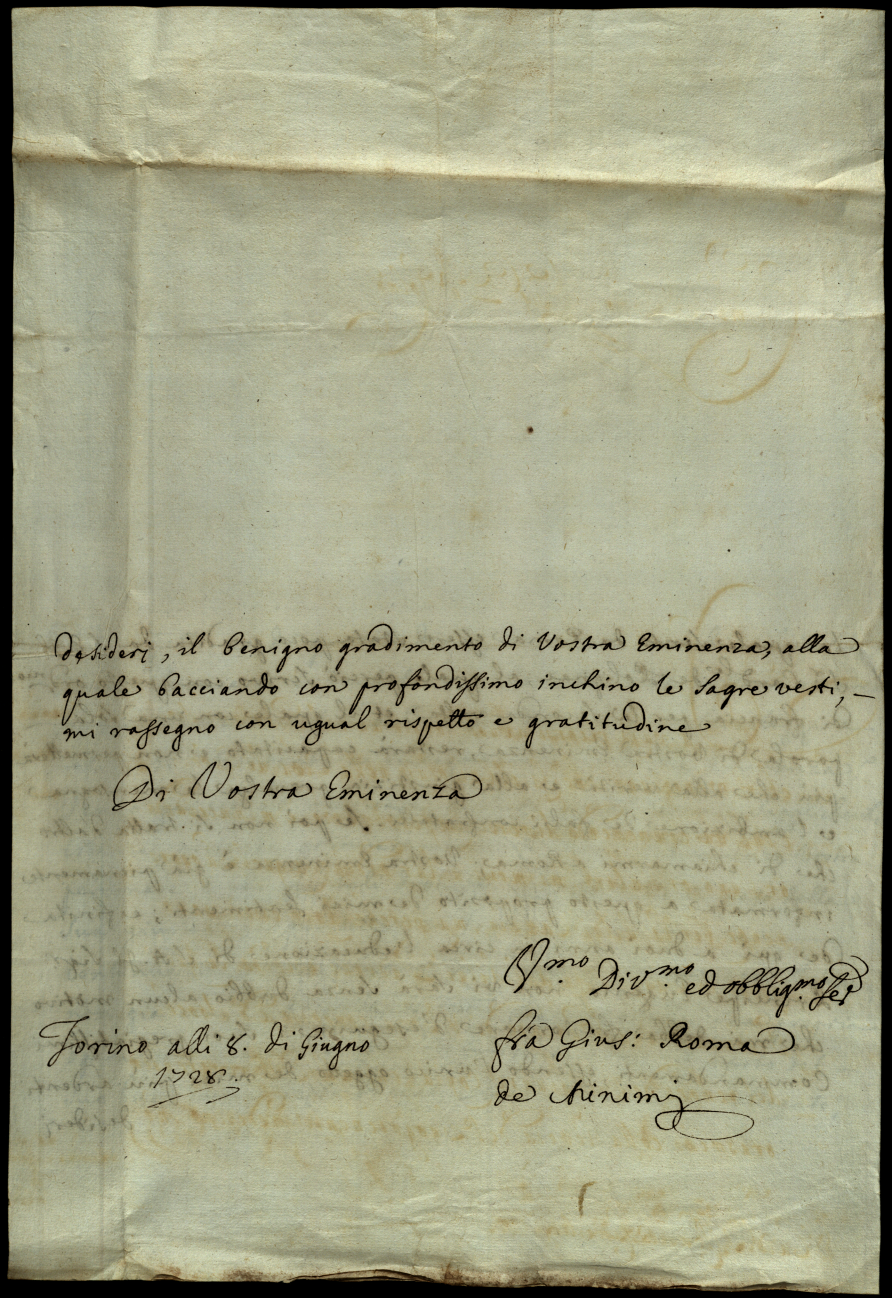 desiderj, il benigno gradimento di Vostra Eminenza, alla
quale bacciando con profondissimo inchino le Sagre vesti, —
mi rassegno con ugual rispetto e gratitudine
Di Vostra Eminenza
Vmo. Divmo. ed obbligmo. Ser
Torino alli 8. di Giugno
1728.
fra Gius: Roma
de Minimi